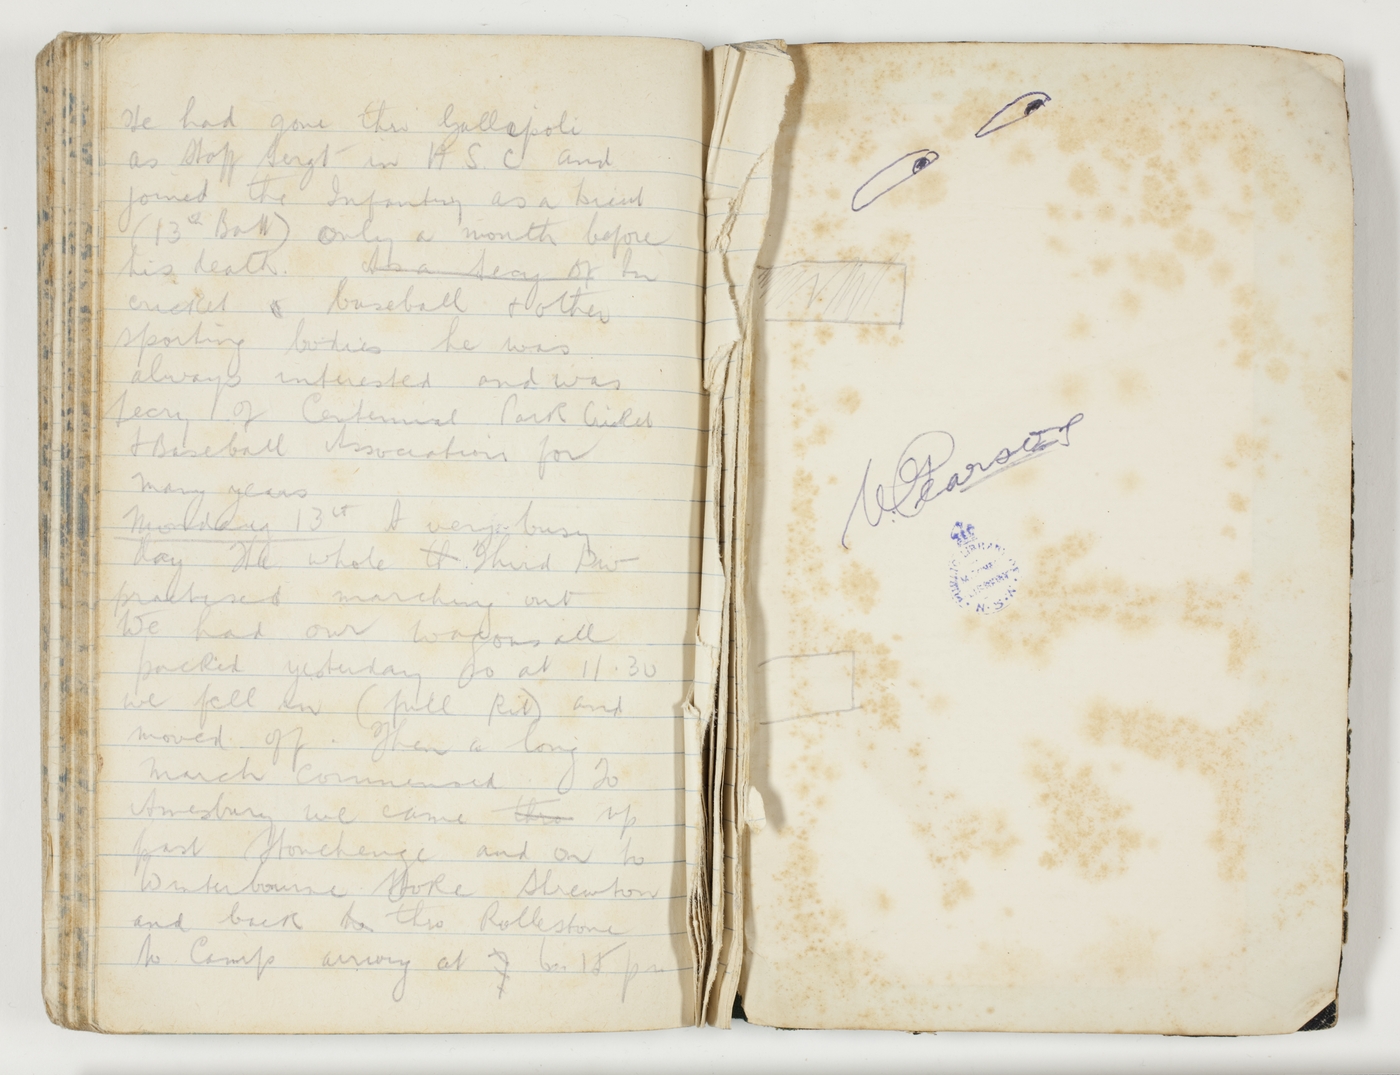 He had gone thro Gallapoli
as Staff Sergt in H.S.C and
joined the Infantry as a Lieut
(13th Batt) only a month before
his death. As a Secy of In
cricket & baseball & other
sporting bodies he was
always interested and was
Secry of Centennial Park Cricket
& Baseball Association for
many years
Monday 13th A very busy
day The whole tt Third Bde
practised marching out
We had our wagons all
packed yesterday So at 11.30
we fell in (full Kit) and
moved off. Then a long
march commensed. To
Amesbury we came thro up
past Stonehenge and on to
Winterbourne Stoke Shrewton
and back to thro Rollestone
to Camp arrivig at 7 6.15 pm
W Pearson
LIBRARY
N.S.W.